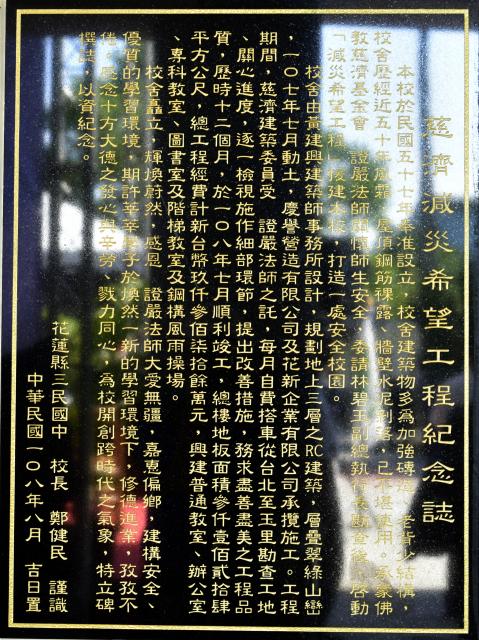 慈濟減災希望工程紀念誌
本校於民國五十七年奉准設立，校舍建築物多為加強磚造、老背少結構，
校舍歷經近五十年風霜，屋頂鋼筋裸露、牆壁水泥剝落，已不堪使用。承蒙佛
教慈濟基金會 證嚴法師顧懷師生安全，委請林碧玉副總執行長勘查後，啓動
「減災希望工程」援建本校，打造一處安全校園。
校舍由黃建興建築師事務所設計，規劃地上三層之RC建築，層疊翠綠山巒
，一○七年七月動土，慶譽營造有限公司及花新企業有限公司承攬施工。工程
期間，慈濟建築委員受 證嚴法師之託，每月自費搭車從台北至玉里勘查工地
、關心進度，逐一檢視施作細部環節，提出改善措施，務求盡善盡美之工程品
質，歷時十二個月，於一○八年七月順利竣工，總樓地板面積參仟壹佰貳拾肆
平方公尺，總工程經費計新台幣玖仟參佰柒拾餘萬元，興建普通教室、辦公室
、專科教室、圖書室及階梯教室及鋼構風雨操場。
校舍矗立，輝煥蔚然，感恩 證嚴法師大愛無疆，嘉惠偏鄉，建構安全、
優質的學習環境，期許莘莘學子於煥然一新的學習環境下，修德進業，孜孜不
倦。感念十方大德之發心與辛勞、戮力同心，為校開創跨時代之氣象，特立碑
撰誌，以資紀念。
花蓮縣三民國中 校長 鄭健民 謹識
中華民國一○八年八月 吉日置